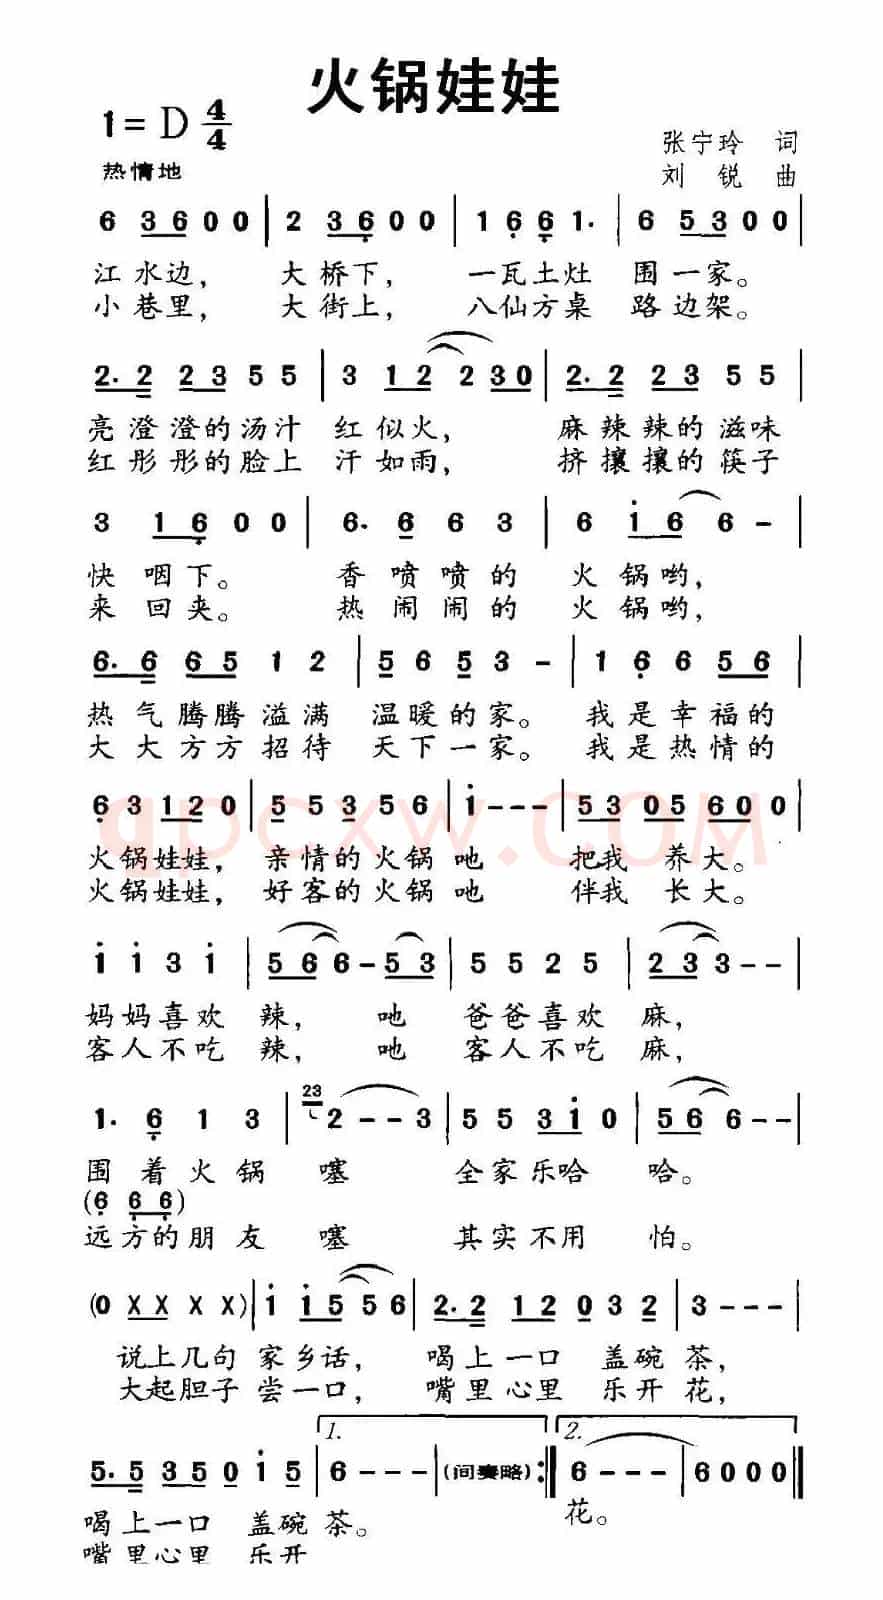 火锅娃娃
1= D 4/4
张宁玲 词
热情地
刘 锐 曲
6 3 6 0 0 | 2 3 6 0 0 | 1 6 6 1. | 6 5 3 0 0 |
江水边， 大桥下， 一瓦土灶 围一家。
小巷里， 大街上， 八仙方桌 路边架。
2. 2 2 3 5 5 | 3 1 2 2 3 0 | 2. 2 2 3 5 5 |
亮澄澄的汤汁 红似火， 麻辣辣的滋味
红彤彤的脸上 汗如雨， 挤攘攘的筷子
3 1 6 0 0 | 6. 6 6 3 | 6 i 6 6 - |
快咽下。 香喷喷的 火锅哟，
来回夹。 热闹闹的 火锅哟，
6. 6 6 5 1 2 | 5 6 5 3 - | 1 6 6 5 6 |
热气腾腾溢满 温暖的家。 我是幸福的
大大方方招待 天下一家。 我是热情的
6 3 1 2 0 | 5 5 3 5 6 | i - - - | 5 3 0 5 6 0 0 |
qpcxw.COM
火锅娃娃， 亲情的火锅 吔 把我 养大。
火锅娃娃， 好客的火锅 吔 伴我 长大。
i i 3 i | 5 6 6 - 5 3 | 5 5 2 5 | 2 3 3 - - |
妈妈喜欢 辣， 吔 爸爸喜欢 麻，
客人不吃 辣， 吔 客人不吃 麻，
1. 6 1 3 | 23 2 - - 3 | 5 5 3 i 0 | 5 6 6 - - |
围着火锅 噻 全家乐哈 哈。
(6 6 6)
远方的朋友 噻 其实不用 怕。
(0 X X X X) | i i 5 5 6 | 2. 2 1 2 0 3 2 | 3 - - - |
说上几句 家乡话， 喝上一口 盖碗茶，
大起胆子 尝一口， 嘴里心里 乐开花，
1. 2.
5. 5 3 5 0 i 5 | 6 - - - | (间奏略) :‖ 6 - - - | 6 0 0 0 ‖
喝上一口 盖碗茶。 花。
嘴里心里 乐开